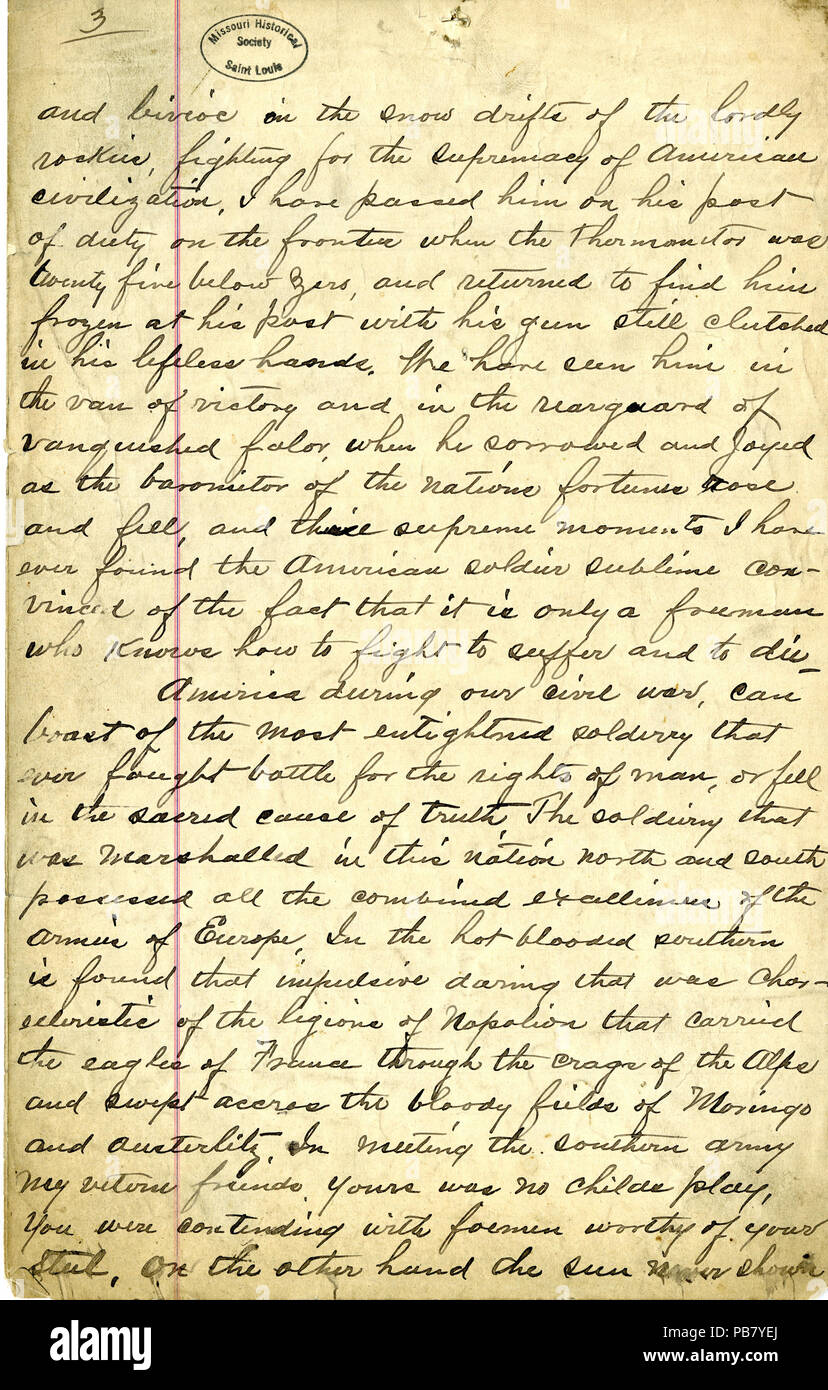 3
Missouri Historical
Society
Saint Louis
and bivioc in the snow drifts of the lordly
rockies, fighting for the supremacy of American
civilization, I have passed him on his post
of duty on the frontier when the thermomitor was
twenty five below zero, and returned to find him
frozen at his post with his gun still clutched
in his lifeless hands. We have seen him in
the van of victory and in the rearguard of
vanquished falor, when he sorrowed and Joyed
as the baromitor of the nations fortunes rose
and fell, and these supreme moments I have
ever found the American soldier sublime con-
vinced of the fact that it is only a freeman
who knows how to fight to suffer and to die-
America during our civil war, can
boast of the most entightned solderry that
ever fought battle for the rights of man, or fell
in the sacred cause of truth The soldiery that
was Marshalled in this nation north and south
possessed all the combined of the
armies of Europe, In the hot blooded southern
is found that impulsive daring that was Char-
of the legions of Napolion that carried
the eagles of France through the crags of the Alps
and swept accros the bloody fields of Moringo
and austerlitz. In meeting the southern army
My friends yours was no childs play,
You were contending with foemen worthy of your
Steel, On the other hand the sun never shown
alamy
Image ID: PB7YEJ
www.alamy.com